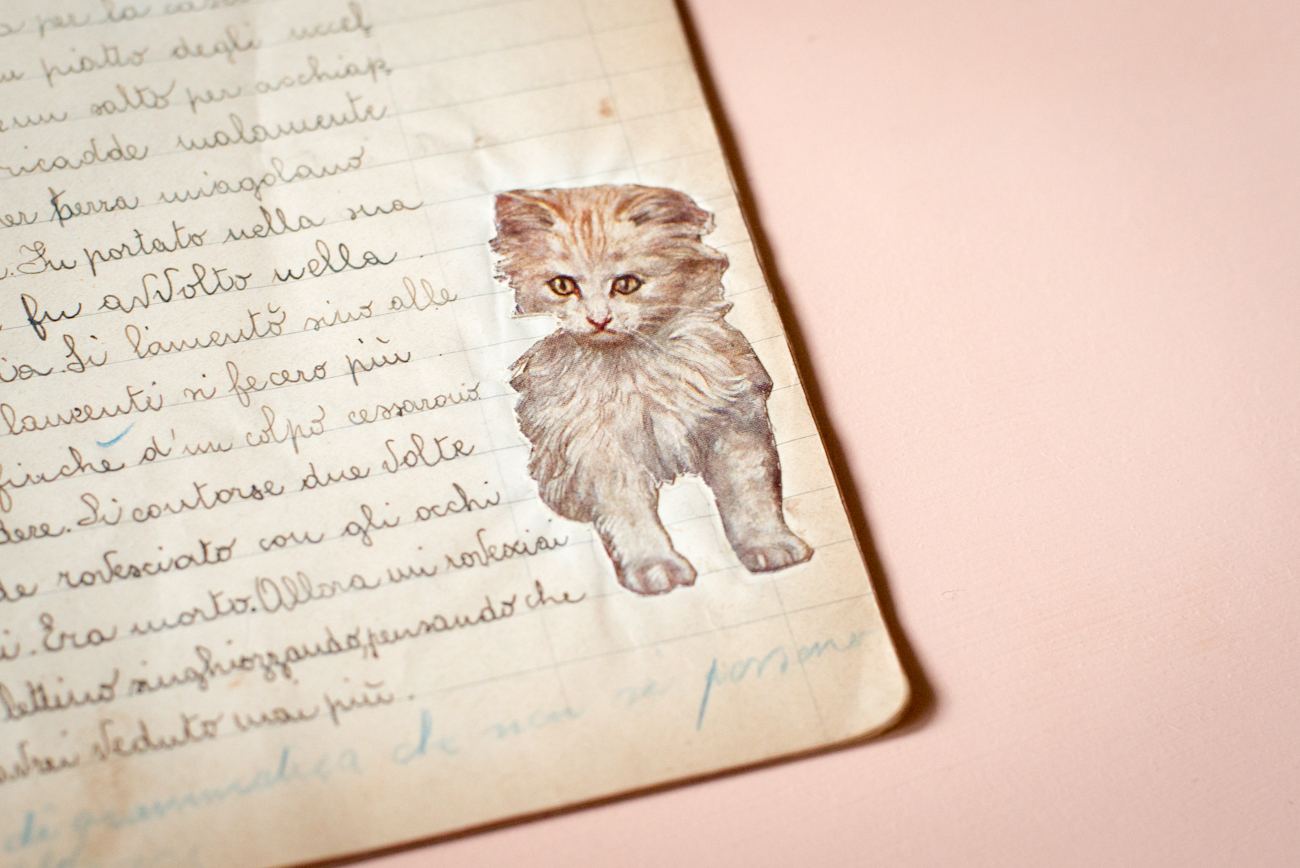 per la
piatto degli uccel
un salto per acchiap
ricadde malamente
per terra miagolano
. Fu portato nella sua
fu avvolto nella
Si lamentò sino alle
lamenti si fecero più
finchè d'un colpo cessarono
dere. Si contorse due volte
de rovesciato con gli occhi
i. Era morto. Allora mi rovesciai
lettino singhiozzando, pensando che
avrei veduto mai più.
di grammatica che non si possono